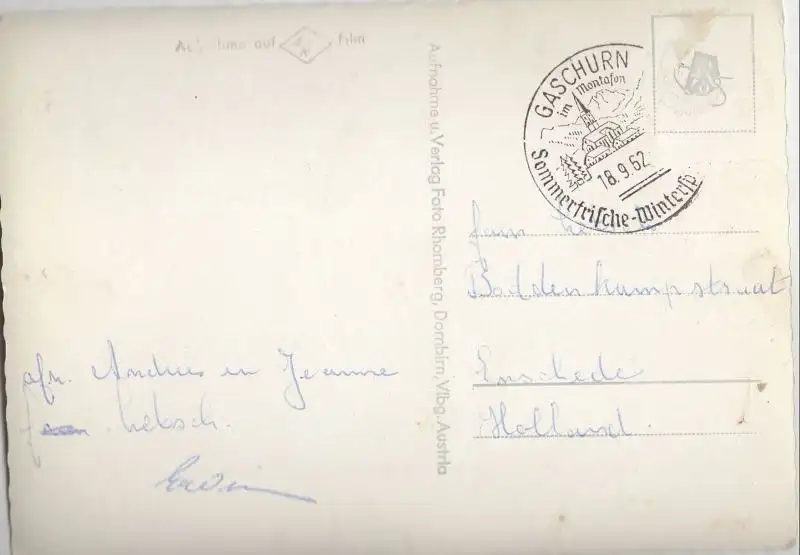 Aufnahme auf Film
Aufnahme u. Verlag Foto Rhomberg, Dornbirn, Vlbg. Austria
GASCHURN
im Montafon
18.9.62
Sommerfrische-Wintersp
fam
Boddenkampstraat
Enschede
Holland.
afn. Andries en Jeanne
Erwin